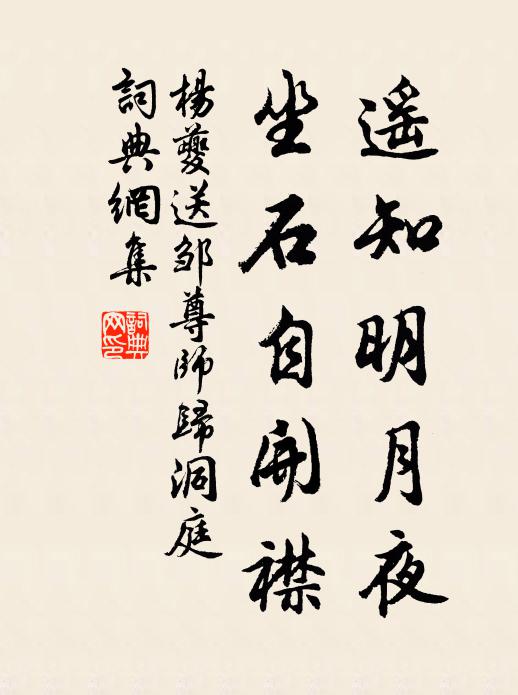 遥知明月夜
坐石自開襟
楊夔送邹尊師歸洞庭
詞典網集
詞典
网印